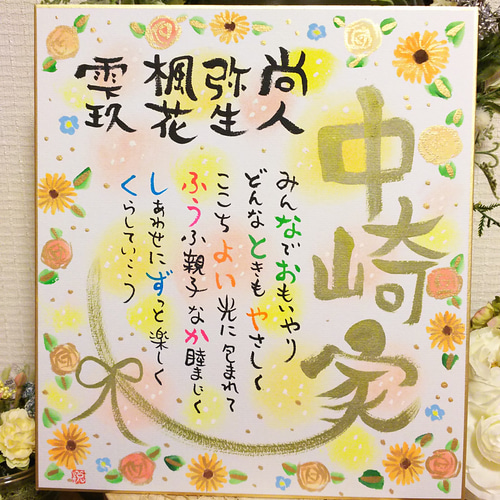 中崎家
尚人
弥生
楓花
雫玖
みんなでおもいやり
どんなときもやさしく
ここちよい光に包まれて
ふうふ親子なか睦まじく
しあわせにずっと楽しく
くらしていこう